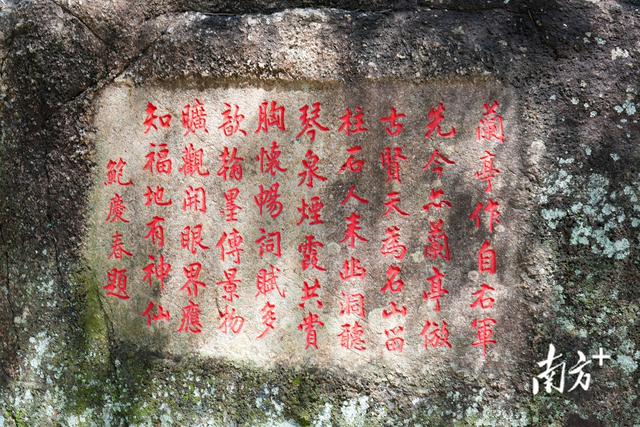 蘭亭作自右軍
先今亦蘭亭倣
古賢天為名山留
柱石人来幽洞聽
琴泉煙霞共賞
胸懷暢詞賦多
歆翰墨傳景物
曠觀開眼界應
知福地有神仙
鮑慶春題
南方+